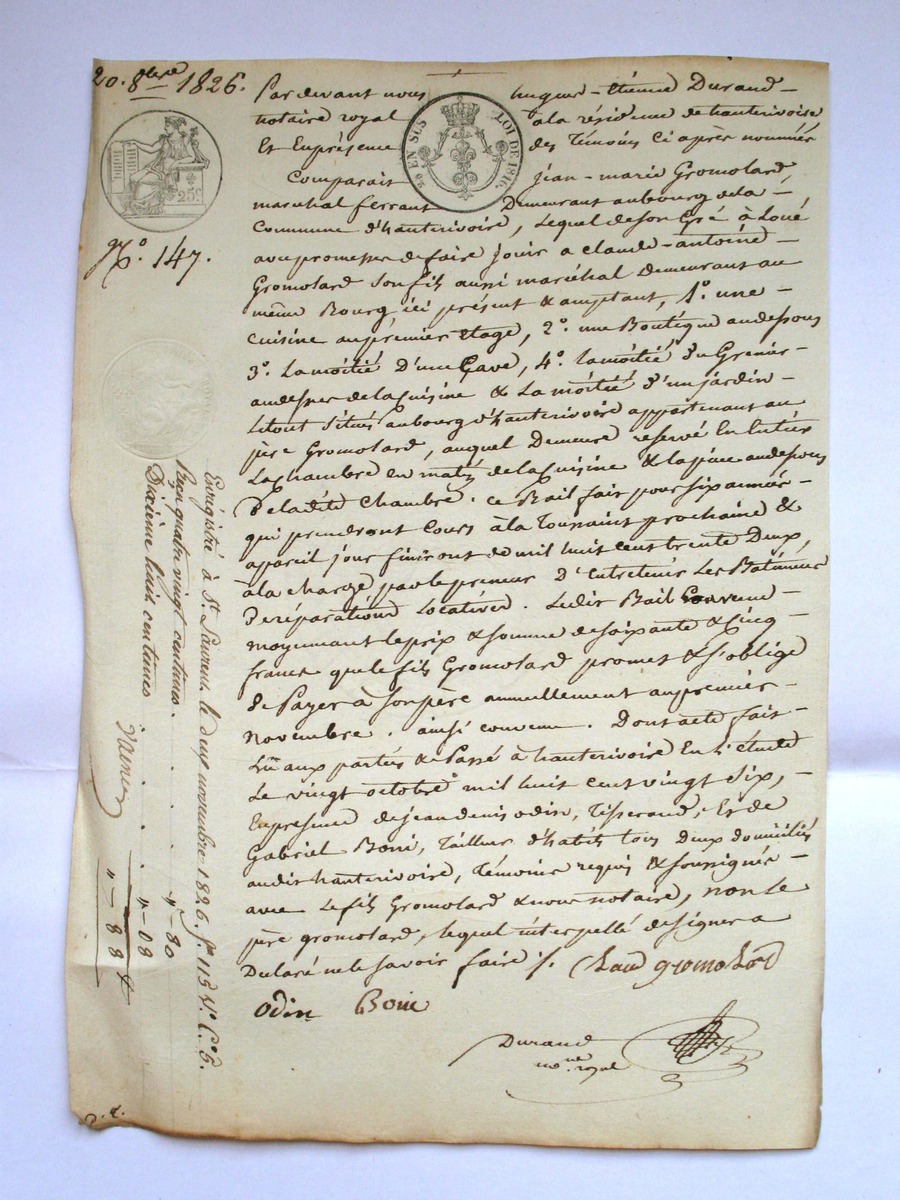 20. 8bre 1826.
Pardevant nous hugues-étienne Durand
notaire royal à la résidence de hauterivoire
Et En présence des Témoins Ci après nommés
25 EN SUS LOI DE 1816.
25c.
No. 147.
Comparait jean-marie Gromolard
maréchal ferrant Demeurant au bourg de la
Commune d'hauterivoire, Lequel de son Gré à Loué
avec promesse de faire jouir a claude-antoine
Gromolard son fils aussi maréchal Demeurant au
même Bourg, ici présent & acceptant, 1o. une
cuisine au premier étage, 2o. une Boutique au dessous
3o. La moitié d'une Cave, 4o. La moitié du Grenier
au dessus de la Cuisine & La moitié d'un jardin
Le tout situés au bourg d'hauterivoire appartenant au
père Gromolard, auquel Demeure réservé En Entier
La Chambre en matin de la Cuisine & la pièce au dessous
De la dite Chambre. ce Bail fait pour six années
qui prendront Cours à la Toussaint prochaine &
a pareil jour finiront de mil huit cent trente Deux,
à la charge, par le preneur D'Entretenir Les Batiments
De réparations Locatives. Le dit Bail Convenu
moyennant le prix & somme de soixante & Cinq
francs que le fils Gromolard promet & s'oblige
de Payer à son père annuellement au premier
novembre. ainsi convenu. Dont acte fait
Lu aux parties & Passé à hauterivoire En L'étude
Le vingt octobre mil huit cent vingt six,
En présence de jean denis odin, Tisserand, Et de
Gabriel Boni, Tailleur d'habits tous deux domiciliés
au dit hauterivoire, Témoins requis & soussignés
avec Le fils Gromolard & nous notaire, non Le
père gromolard, lequel interpellé de signer a
Déclaré ne le savoir faire ./. Claud gromolard
odin Boni
Durand
nore royal
Enrégistré à St. Laurent le deux novembre 1826. fo 115 Vo. Co. 5.
Reçu quatre vingt centimes. " - 80
Dixième huit centimes " - 08
" - 88